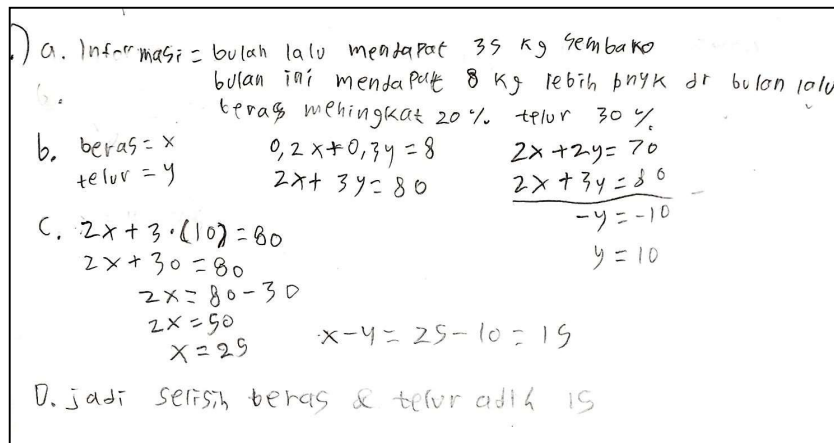 .) a. Informasi = bulan lalu mendapat 35 kg sembako
bulan ini mendapat 8 kg lebih bnyk dr bulan lalu
beras meningkat 20% telur 30%
b. beras = x
telur = y
0,2x + 0,3y = 8
2x + 3y = 80
2x + 2y = 70
2x + 3y = 80 -
-y = -10
y = 10
C. 2x + 3·(10) = 80
2x + 30 = 80
2x = 80 - 30
2x = 50
x = 25
x - y = 25 - 10 = 15
D. jadi selisih beras & telur adlh 15